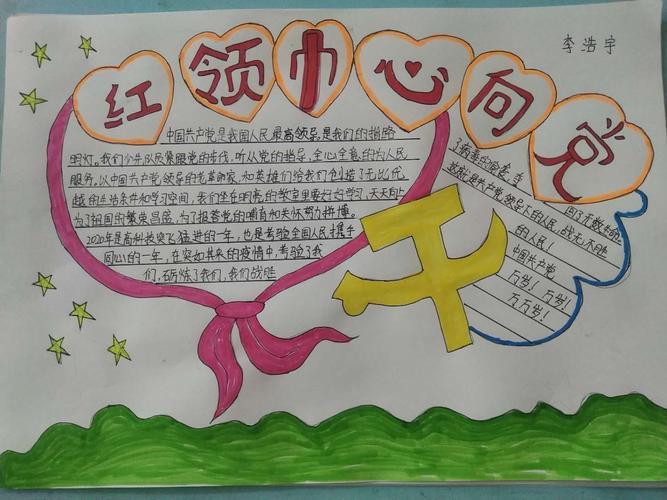 红领巾心向党
李浩宇
中国共产党是我国人民最高领导,是我们的指路
明灯。我们少先队员紧跟党的步伐,听从党的指导,全心全意的为人民
服务。以中国共产党领导的老革命家,和英雄们给我们创造了无比优
越的生活条件和学习空间,我们坐在明亮的教室里要好好学习,天天向上
为了祖国的繁荣昌盛,为了报答党的哺育和关怀努力拼搏。
2020年是高科技突飞猛进的一年,也是考验全国人民携手
同心的一年,在突如其来的疫情中,考验了我
们,砺炼了我们,我们战胜
了病毒的
回了无数生命
这就是共产党领导下的人民,战无不胜
的人民!
中国共产党
万岁!万岁!
万万岁!